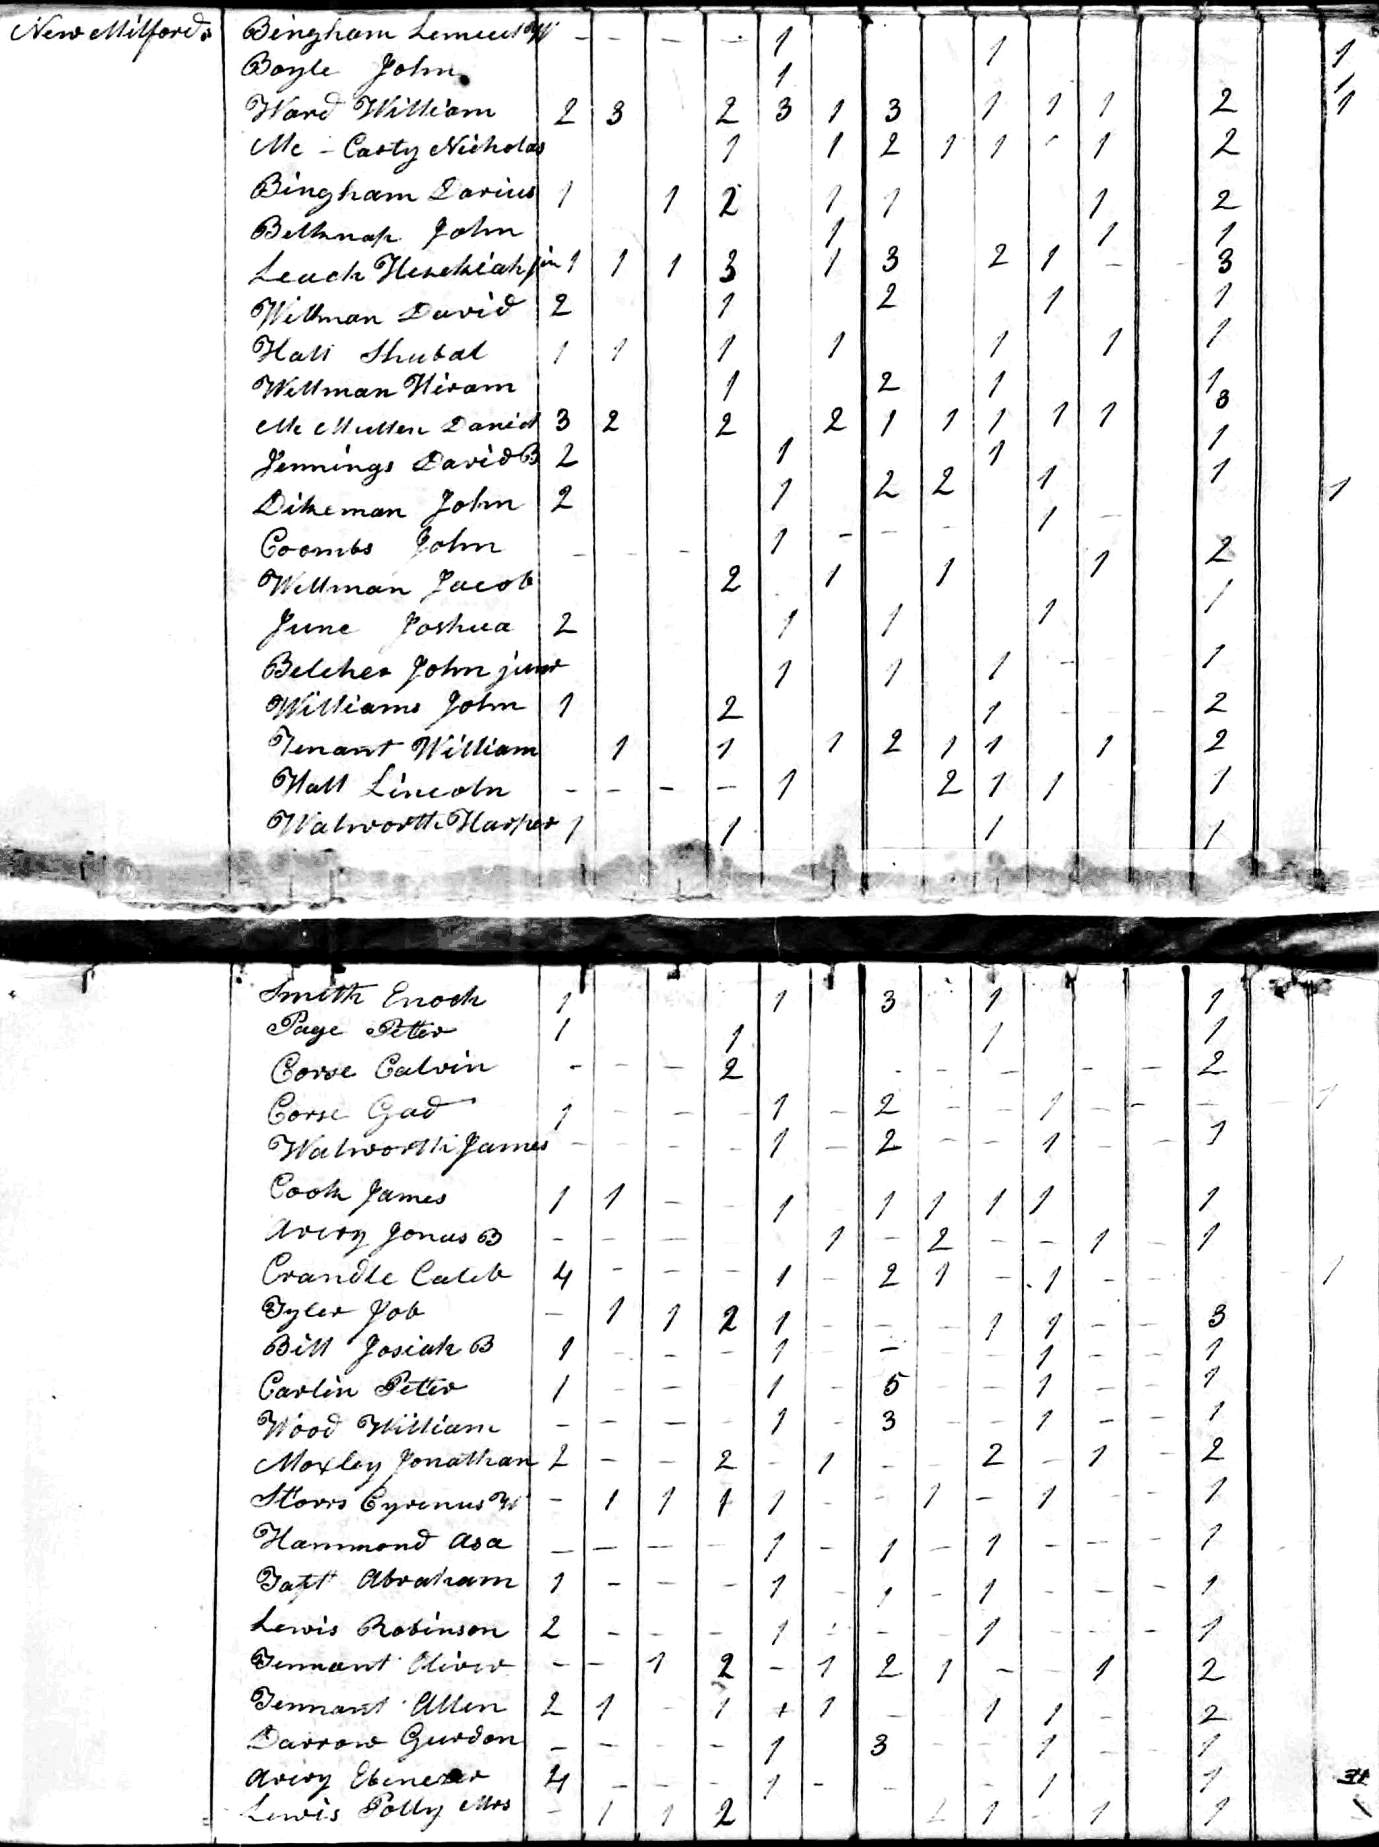 New Milford Bingham Lemuel W - - - - 1 1 1
Boyle John 1 1
Ward William 2 3 2 3 1 3 1 1 1 2 1
Mc - Carty Nicholas 1 1 2 1 1 1 2
Bingham Darius 1 1 2 1 1 1 2
Belknap John 1 1 1
Leach Hezekiah jun 1 1 1 3 1 3 2 1 - - 3
Willman David 2 1 2 1 1
Hall Shubal 1 1 1 1 1 1 1
Wellman Hiram 1 2 1 1
Mc Mullen Daniel 3 2 2 2 1 1 1 1 1 3
Jennings David B 2 1 1 1
Dikeman John 2 1 2 2 1 1 1
Coombs John - - - 1 - - - - 1 -
Wellman Jacob 2 1 1 1 2
June Joshua 2 1 1 1 1
Belcher John junr 1 1 1 - - 1
Williams John 1 2 1 - - - 2
Tenant William 1 1 1 2 1 1 1 2
Hall Lincoln - - - - 1 2 1 1 1
Walworth Harper 1 1 1 1
Smith Enoch 1 1 3 1 1
Page Peter 1 1 1 1
Corse Calvin - - - 2 - - - - - - 2
Corse Gad 1 - - - 1 - 2 - - 1 - - - - 1
Walworth James - - - - 1 - 2 - - 1 - - 1
Cook James 1 1 - - 1 - 1 1 1 1 1
Avery Jonas B - - - - 1 - 2 - - 1 - 1
Crandle Caleb 4 - - - 1 - 2 1 - 1 - - - 1
Tyler Job - 1 1 2 1 - - - 1 1 - - 3
Bill Josiah B 1 - - - 1 - - - 1 - - 1
Carlin Peter 1 - - - 1 - 5 - - 1 - - 1
Wood William - - - 1 - 3 - - 1 - - 1
Moxley Jonathan 2 - - 2 - 1 - - 2 - 1 - 2
Storrs Cyrenus W - 1 1 1 1 - - 1 - 1 - - 1
Hammond Asa - - - - 1 - 1 - 1 - - - 1
Taft Abraham 1 - - - 1 - 1 - 1 - - - 1
Lewis Robinson 2 - - - 1 - - - 1 - - - 1
Tennant Oliver - - 1 2 - 1 2 1 - - 1 2
Tennant Allen 2 1 - 1 + 1 - 1 1 - 2
Darrow Gurdon - - - - 1 3 - - 1 - - 1
Avery Ebenezer 4 - - - 1 - - - - 1 - 1
Lewis Polly Mrs - 1 1 2 1 1 - 1 1